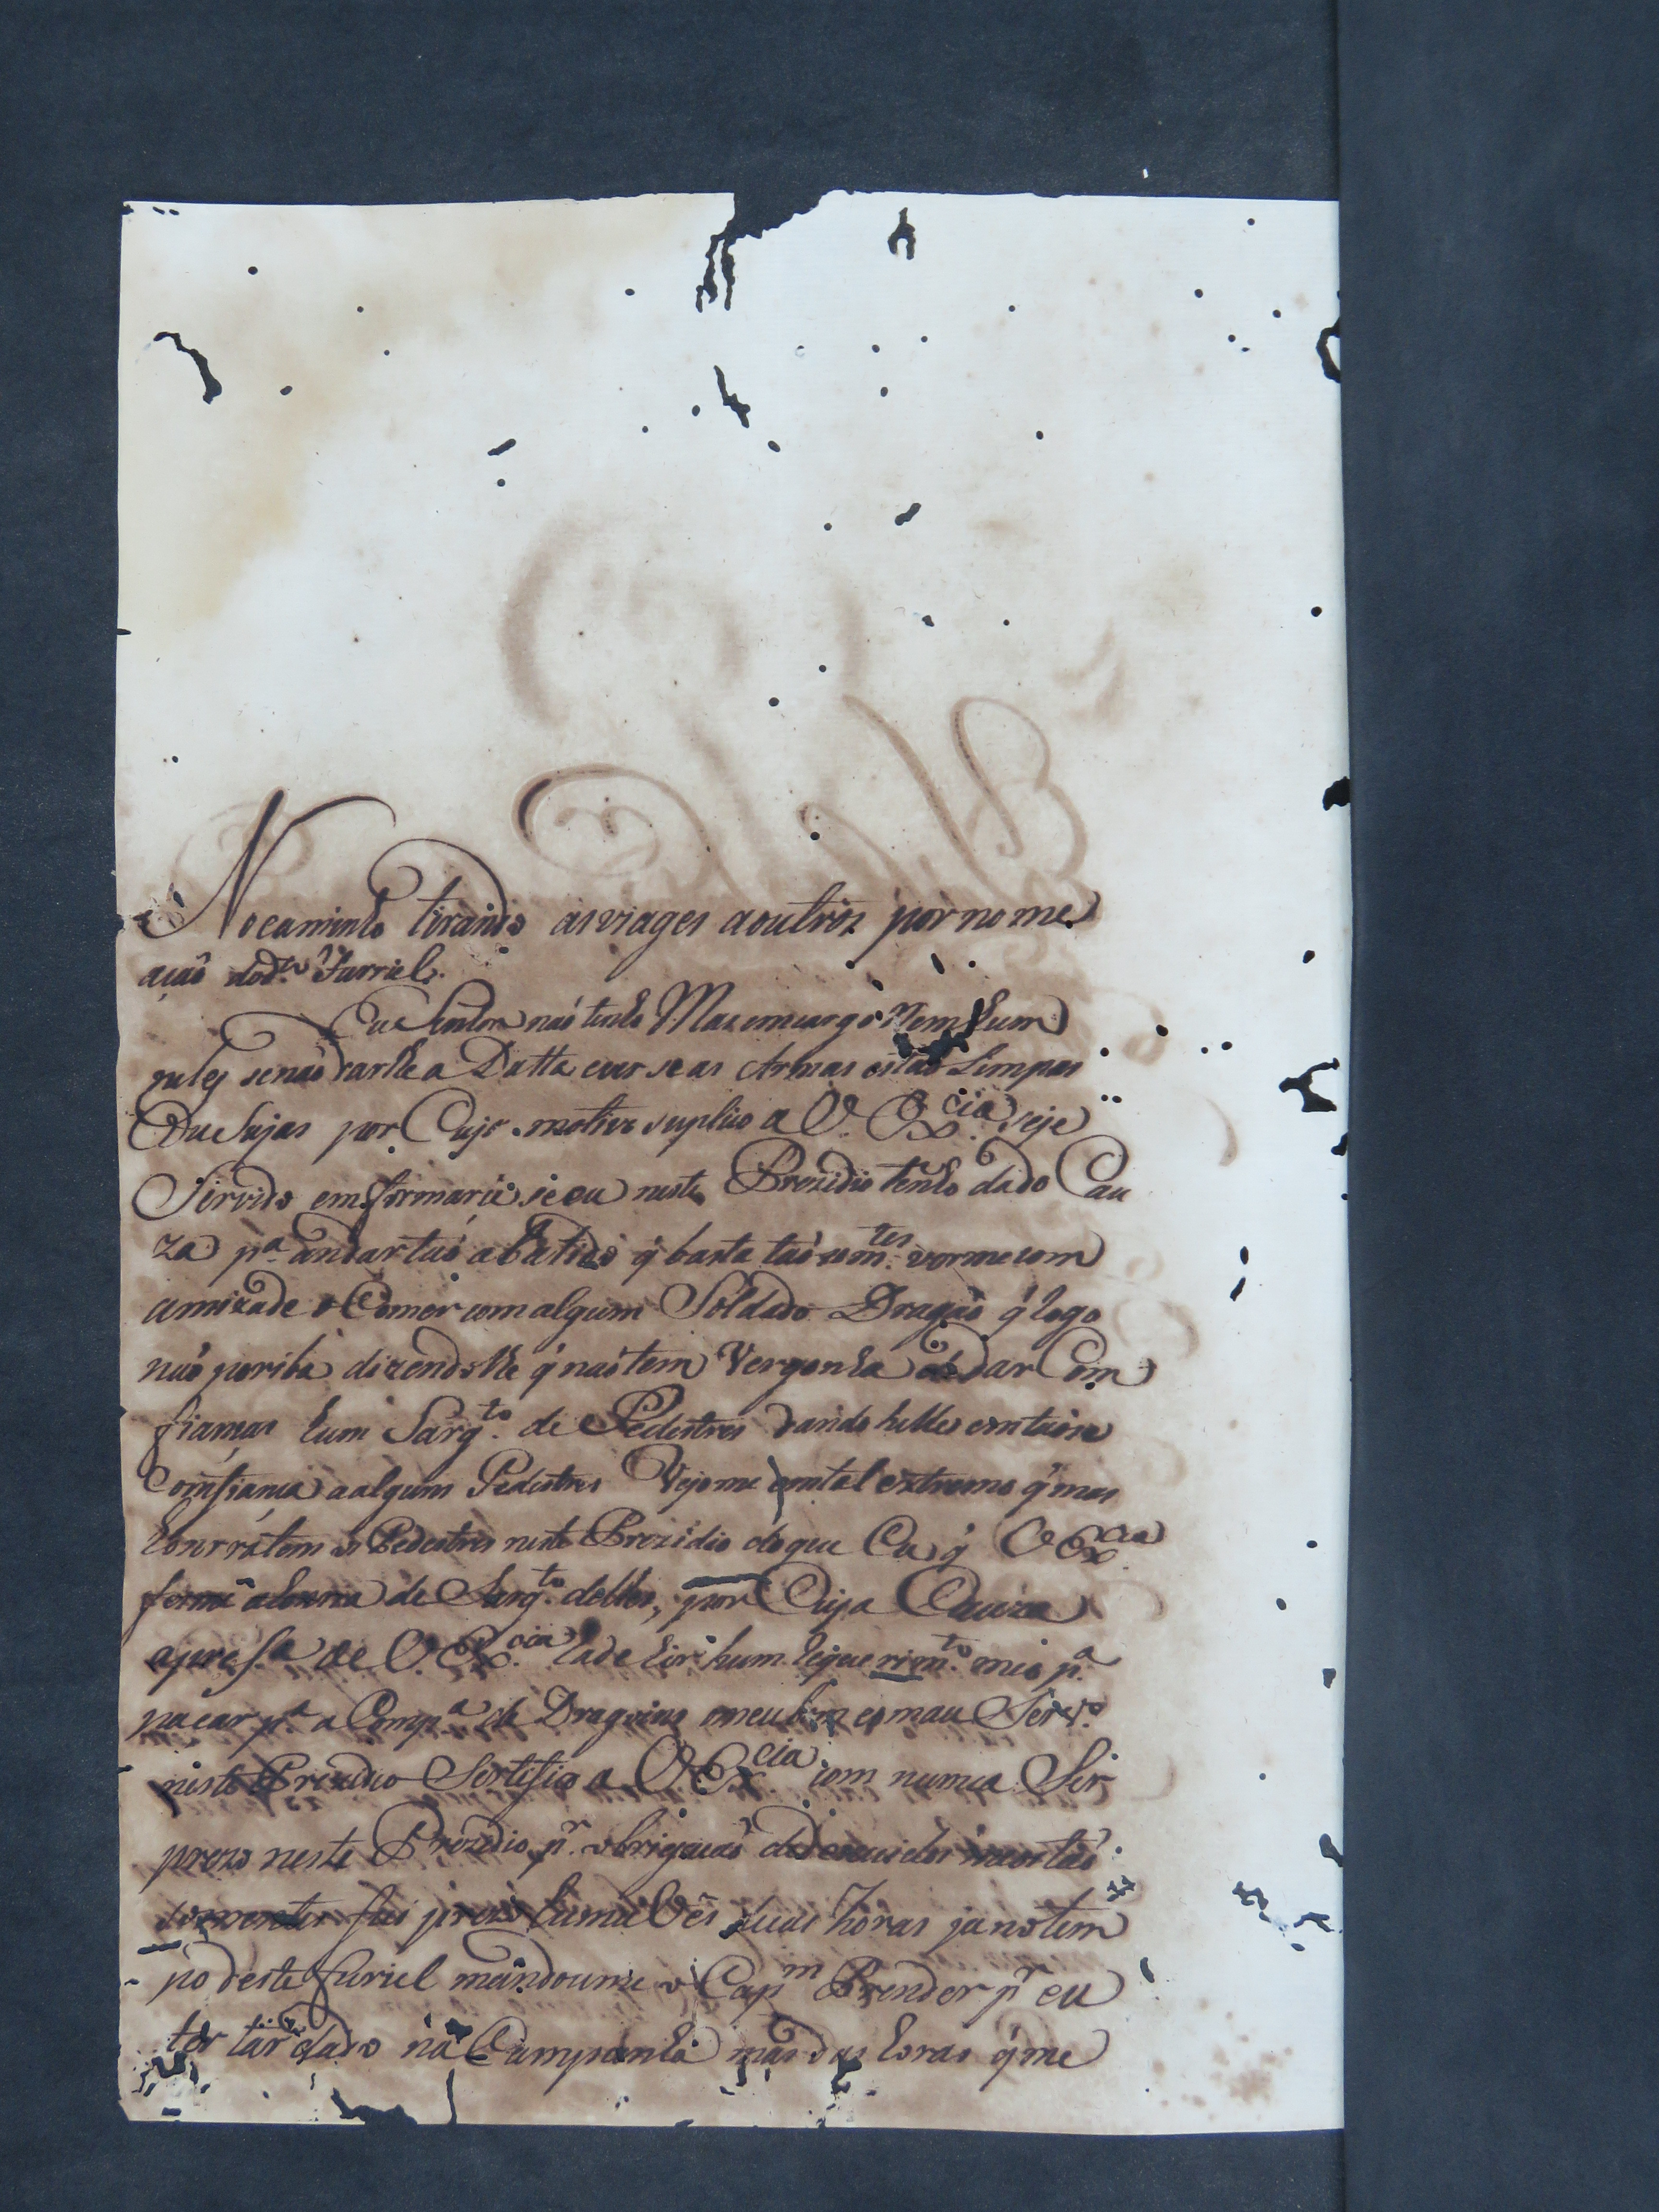 No caminho tirando as viages aoutros por nome
acaõ dod.to Furriel.
Eu Senhor naõ tenho Maz emcargo Nem hum
pules senaõ darlhe a Datta ever se as Armas estaõ Limpas
Ou Sujas por Cujo motivo suplico a V. Ex.cia seje
Servido emformarce se eu neste Prezidio tenho dado Cau
za p.a andar taõ abatido q̃ basta taõ som.tes vorme com
amizade e Comer com algum Soldado Dragaõ q̃ logo
naõ poriba dizendolhe q̃ naõ tem Vergonha de dar Com
fiansas hum Sarg.to de Pedestres dando helles emtaõ
Comfianca aalguns Pedestres Vejome em tal extremo q̃ mas
honrratem os Pedestres neste Prezidio do que Eu q̃ V Ex.cia
fesme ahonrra de Sarg.to delles, por Cuja Cauza
apres.a de V. Ex.cia hade hir hum requerim.to meo p.a
pacar p.a a Comp.a de Dragoins omeu bem eomau Serv.o
neste Prezidio Sertifico a V Ex.cia com nunca Ser
prezo neste Prezidio p.r obrigacaõ de descuidos
somentes fui prezo huma ves duas horas ja notem
po deste furiel mandoume o Cap.m Prender p.r eu
ter tardado na Campanha mas das horas q̃ me